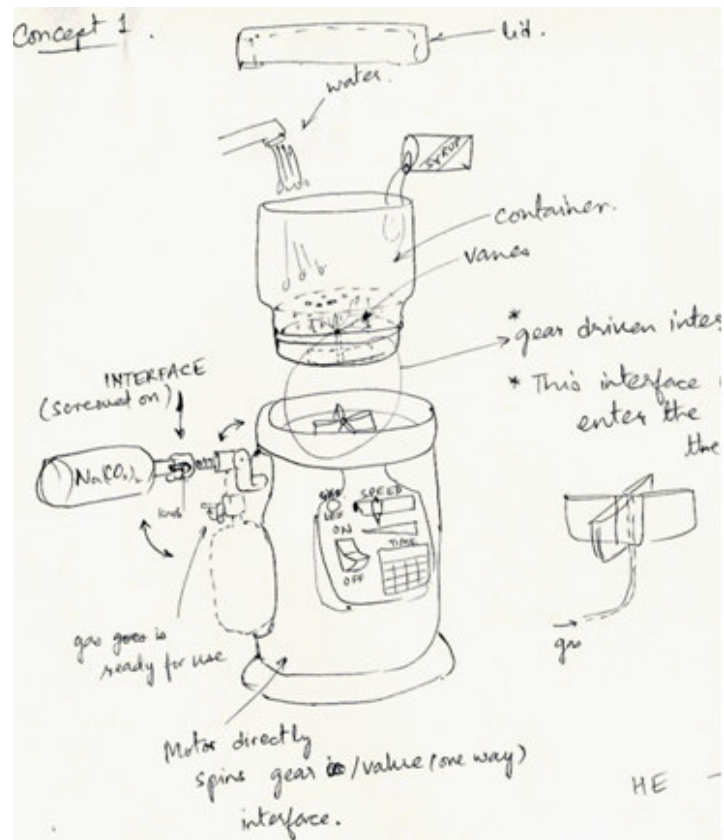 Concept 1.
lid.
water.
SYRUP
container.
vanes
* gear driven inter
* This interface
enter the
the
INTERFACE
(screwed on)
Na(CO3)2
knob
SPEED
ON
OFF
TIME
gas goes is
ready for use
gas
Motor directly
spins gear /value (one way)
interface.
HE -